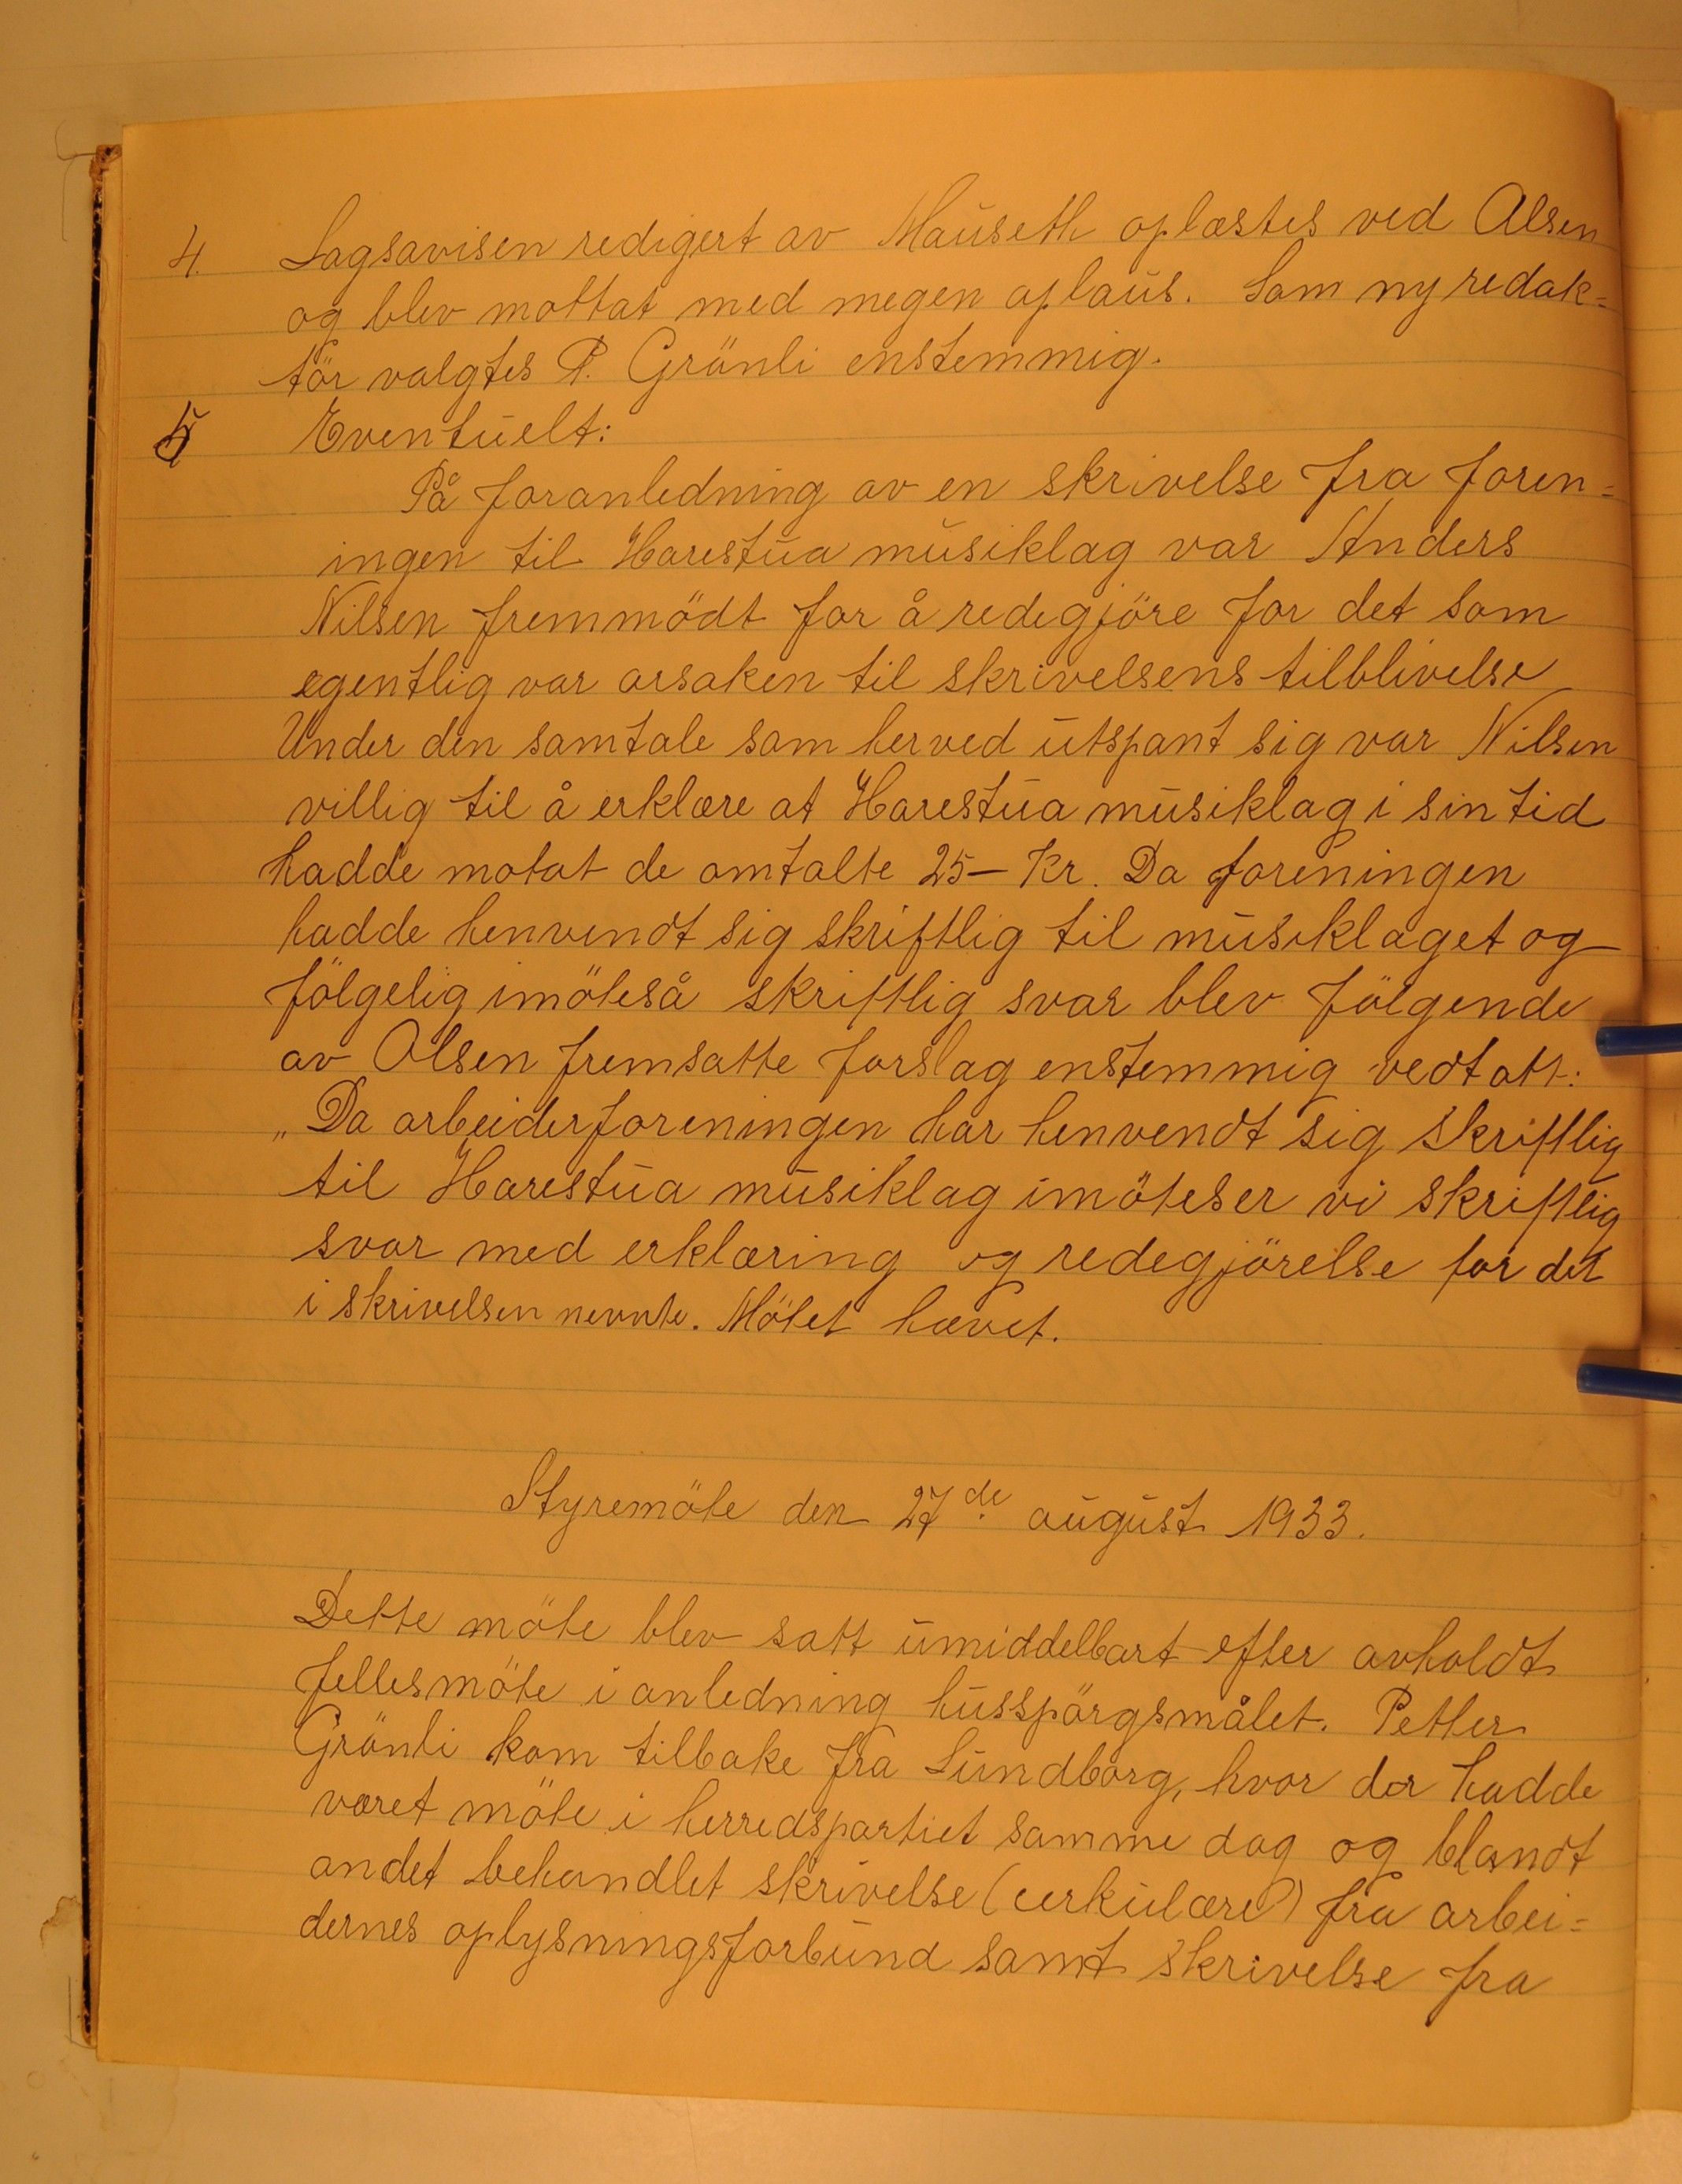 4. Lagsavisen redigert av Mauseth oplæstes ved Olsen
og blev mottat med megen aplaus. Som ny redak=
tör valgtes P. Grönli enstemmig.
5 Eventuelt:
På foranledning av en skrivelse fra foren=
ingen til Harestua musiklag var Anders
Nilsen fremmödt for å redegjöre for det som
egentlig var årsaken til skrivelsens tilblivelse
Under den samtale som herved utspant sig var Nilsen
villig til å erklære at Harestua musiklag i sin tid
hadde motat de omtalte 25- Kr. Da foreningen
hadde henvendt sig skriftlig til musiklaget og
fölgelig imöteså skriftlig svar blev fölgende
av Olsen fremsatte forslag enstemmig vedtatt:
„Da arbeiderforeningen har henvendt sig skriftlig
til Harestua musiklag imöteser vi skriftlig
svar med erklæring og redegjörelse for det
i skrivelsen nevnte. Mötet hævet.
Styremöte den 27de august 1933.
Dette möte blev satt umiddelbart efter avholdt
fellesmöte i anledning husspörgsmålet. Petter
Grönli kom tilbake fra Lundborg, hvor der hadde
været möte i herredspartiet samme dag og blandt
andet behandlet skrivelse (cerkulære) fra arbei=
dernes oplysningsforbund samt skrivelse fra